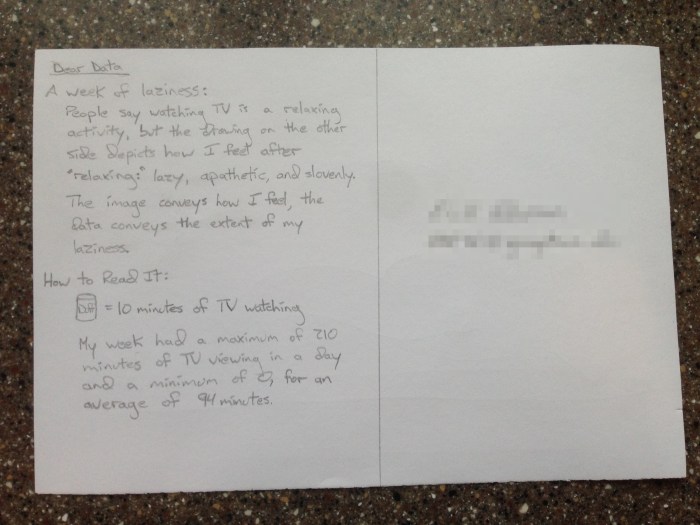 Dear Data
A week of laziness:
People say watching TV is a relaxing
activity, but the drawing on the other
side depicts how I feel after
"relaxing:" lazy, apathetic, and slovenly.
The image conveys how I feel, the
data conveys the extent of my
laziness.
How to Read It:
= 10 minutes of TV watching
My week had a maximum of 210
minutes of TV viewing in a day
and a minimum of 0, for an
average of 94 minutes.